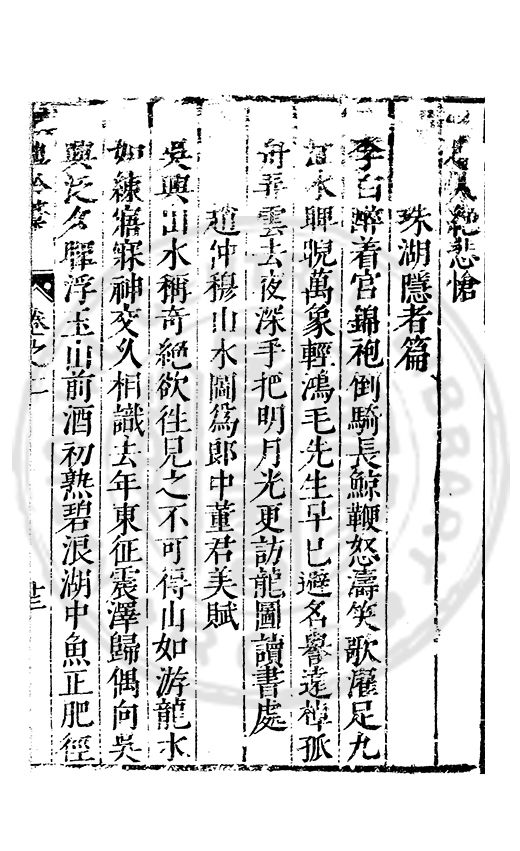 人絕悲愴
珠湖隱者篇
李白醉着官錦袍倒騎長鯨鞭怒濤笑歌濯足九
江水睥睨萬象輕鴻毛先生早已避名譽遠棹孤
舟弄雲去夜深手把明月光更訪龍圖讀書處
趙仲穆山水圖爲郎中董君美賦
吳興山水稱奇絕欲徃見之不可得山如游龍水
如練寤寐神交久相識去年東征震澤歸偶向吳
興泛夕暉浮玉山前酒初熟碧浪湖中魚正肥徑
卷之二
廿三